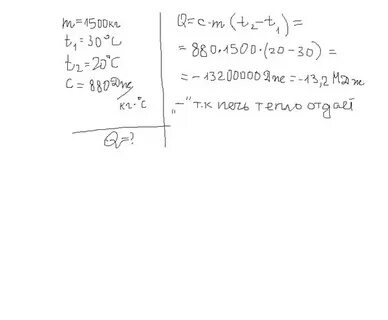 m=1500кг
t₁=30°C
t₂=20°C
c=880Дж/кг·°C
Q=?
Q=c·m(t₂-t₁)=
=880·1500·(20-30)=
=-13200000Дж=-13,2МДж
„-" т.к печь тепло отдаёт